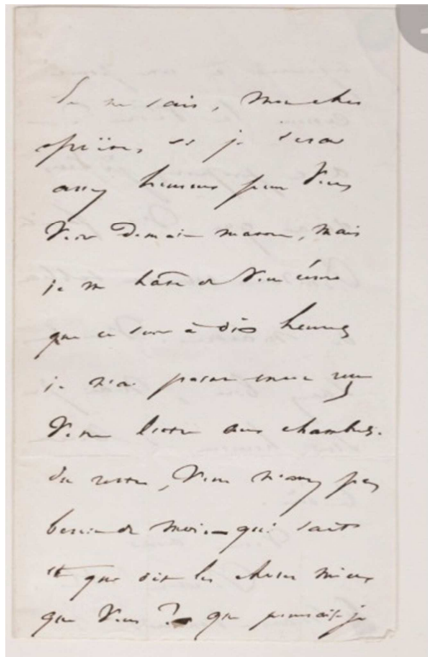 Je ne sais, mon cher
si je serai
assez heureux pour vous
voir demain matin, mais
je me hâte de vous écrire
que ce soir à dix heures
je n'ai point encore reçu
votre lettre aux chambres.
Du reste, vous n'avez pas
besoin de moi — qui sait
et qui dit les choses mieux
que vous ? que pourrais-je